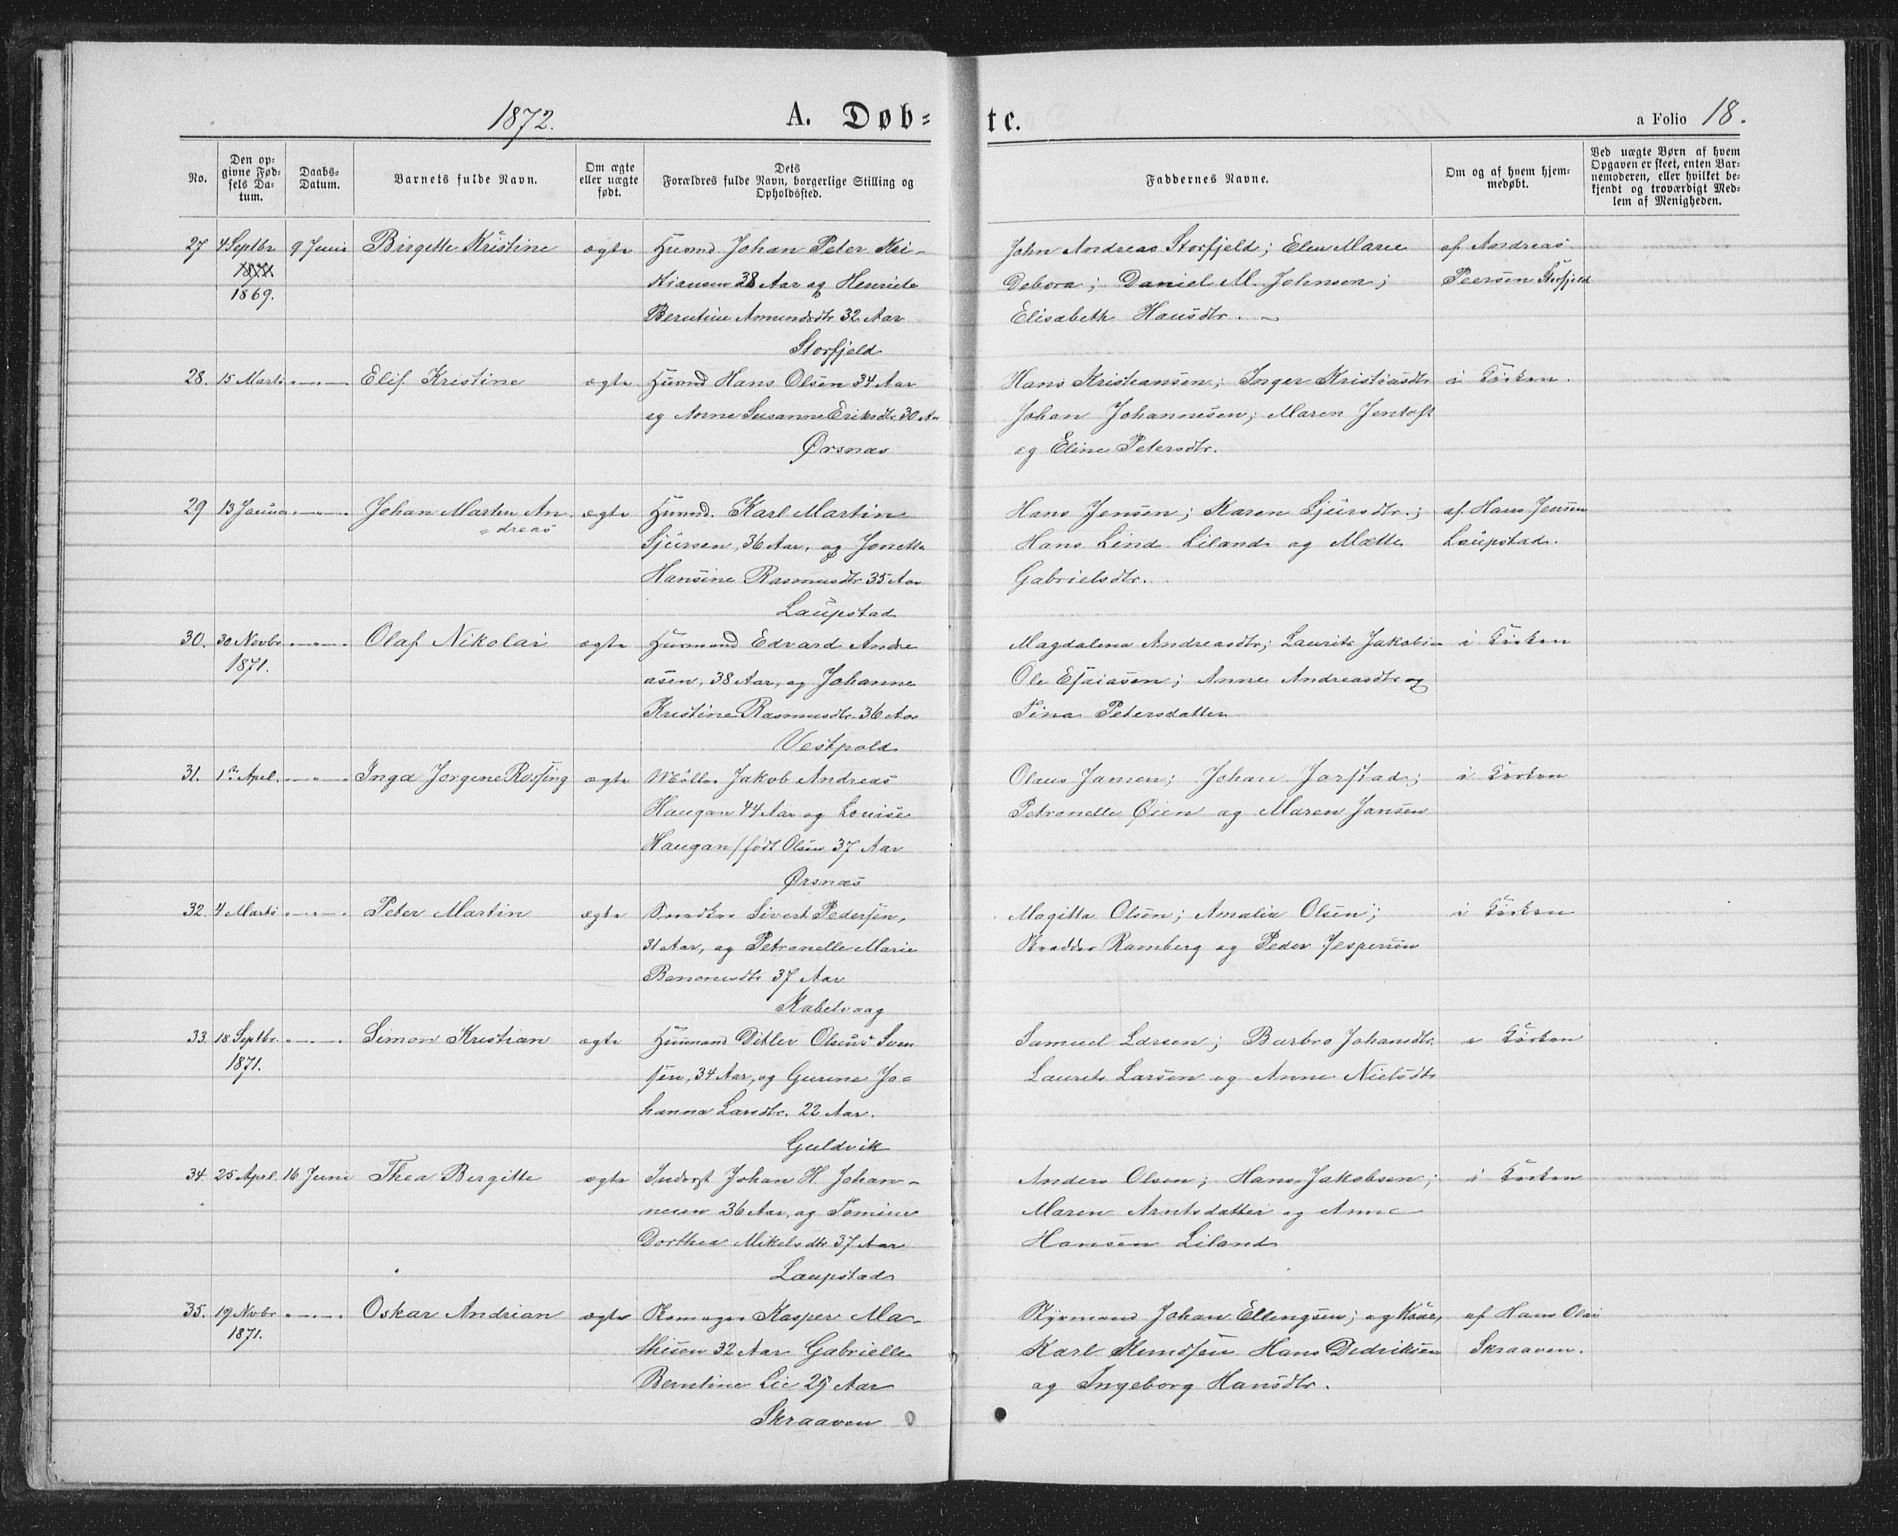 1872. A. Døb= te. a Folio 18.
No.
Den op=
givne Fød=
sels Da=
tum.
Daabs=
Datum.
Barnets fulde Navn.
Om ægte
eller uægte
født.
Dets
Forældres fulde Navn, borgerlige Stilling og
Opholdssted.
Faddernes Navne.
Om og af hvem hjem=
medøbt.
Ved uægte Børn af hvem
Opgaven er skeet, enten Bar=
nemoderen, eller hvilket be=
kjendt og troværdigt Med=
lem af Menigheden.
27 4 Septbr 9 Juni Birgitte Kristine ægte Husmd. Johan Peter Kri- John Andreas Storfjeld; Elen Marie af Andreas
1871 1869. Kiansen 38 Aar og Henriete Debora; Daniel M. Johnsen; Peersen Storfjeld
Berntine Amundsdtr 32 Aar Elisabeth Hansdtr.
Storfjeld
28. 15 Marts Elif Kristine ægte Husmd Hans Olsen 34 Aar Hans Kristiansen; Inger Kristiansdtr i Kirken.
og Anne Susanne Eriksdtr 30 Aar Johan Johannesen; Maren Jentoft
Ørsnæs og Eline Petersdtr.
29 13 Januar Johan Marten An- ægte Husmd. Karl Martin Hans Jensen; Karen Sjursdtr.; af Hans Jensen
=dreas Sjursen, 36 Aar, og Jonetta Hans Lind Liland og Mætte Laupstad.
Hansine Rasmusdtr 35 Aar Gabrielsdtr.
Laupstad
30. 30 Novbr Olaf Nikolai ægte Husmand Edvard Andre Magdalena Andreasdtr; Laurits Jakobsen i Kirken
1871. asen, 38 Aar, og Johanne Ole Esaiasen; Anne Andreasdtr og
Kristine Rasmusdtr 36 Aar Tina Petersdatter
Vestpold
31. 1ste Apil. Inga Jorgene Rossing ægte Møller Jakob Andreas Olaus Jansen; Johan Jorstad; i Kirken
Haugan 44 Aar og Louise Petronelle Øien og Maren Jansen
Haugan / født Olsen 37 Aar
Ørsnæs
32. 4 Marts Peter Martin ægte Sivert Pedersen, Magitta Olsen; Amalia Olsen; i Kirken
31 Aar, og Petronelle Marie Ramberg og Peder Jespersen
Benoniesdtr 37 Aar
Kabelvaag
33. 18 Septbr. Simon Kristian ægte Husmand Ditlev Olsens Sven Samuel Larsen; Barbro Johansdtr. i Kirken
1871. sen, 34 Aar, og Gurine Jo= Laurits Larsen og Anne Nielsdtr
hanna Larsdtr. 22 Aar.
Guldvik
34. 25 Apil. 16 Juni Thea Bergitte ægte Inderst Johan H. Johan- Anders Olsen; Hans Jakobsen; i Kirken
nesen 36 Aar, og Tomine Maren Arntsdatter og Anne
Dorthea Mikelsdtr 37 Aar Hansen Liland
Laupstad
35. 19 Novbr Oskar Andrian ægte Kasper Ma- Styrmand Johan Ellengsen; og Kone, af Hans Olsen
1871. thisen 32 Aar Gabrielle Karl Knudsen Hans Dedriksen Skraaven.
Berntine Lie 29 Aar og Ingeborg Hansdtr.
Skraaven